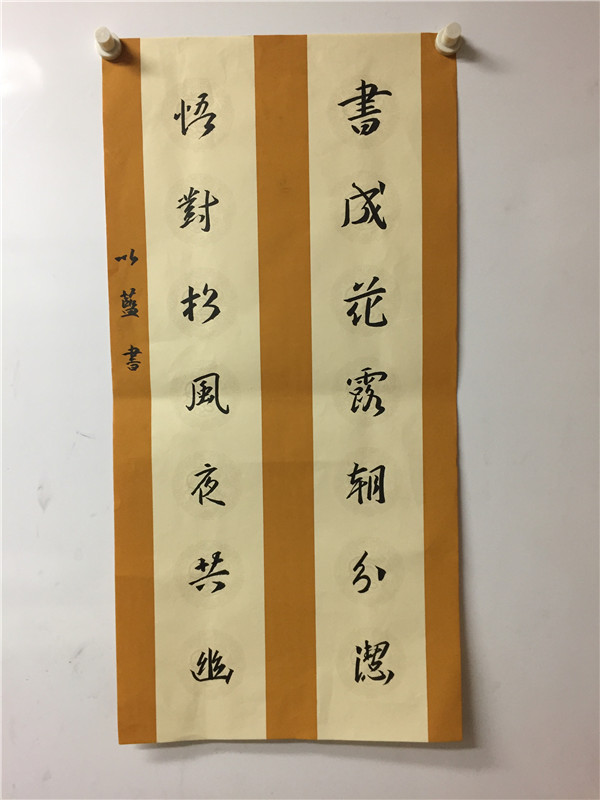 書成花露朝分潔
悟對松風夜共幽
以藍書